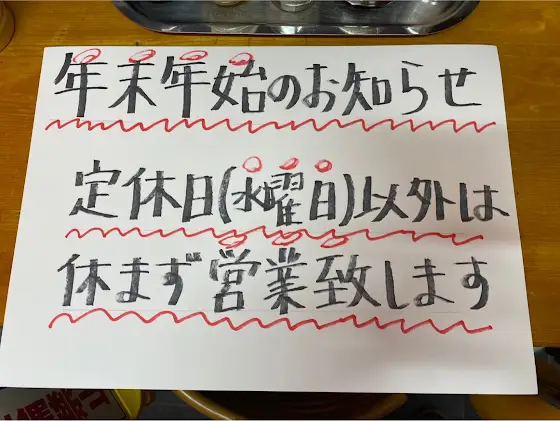 年末年始のお知らせ
定休日(水曜日)以外は
休まず営業致します